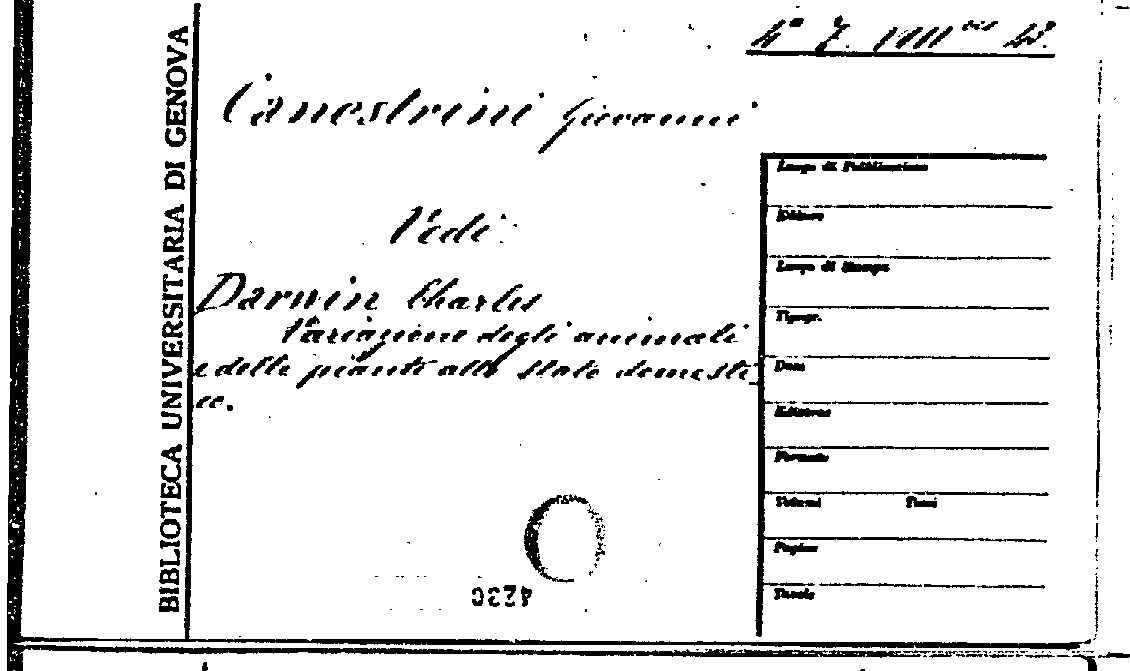 BIBLIOTECA UNIVERSITARIA DI GENOVA
Canestrini Giovanni
Vedi:
Darwin Charles
Variazione degli animali
e delle piante allo stato domesti
co.
Luogo di Pubblicazione
Editore
Luogo di Stampa
Tipogr.
Data
Edizione
Formato
Volumi Tomi
Pagine
Tavole
4230